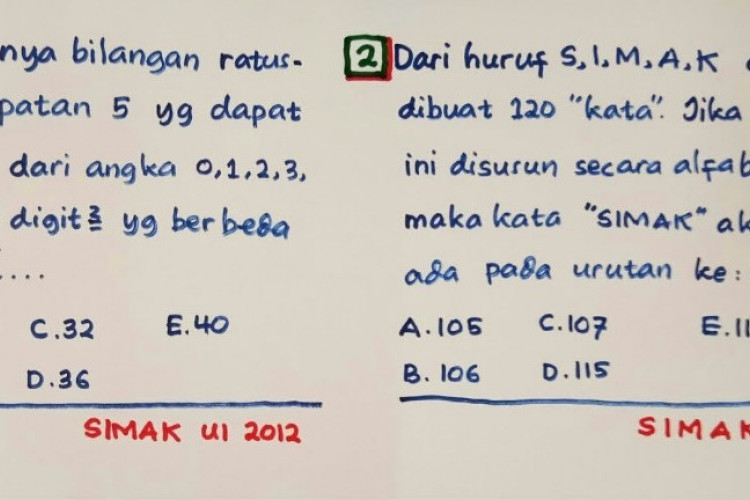 nya bilangan ratus-
patan 5 yg dapat
dari angka 0,1,2,3,
digit2 yg berbeda
....
C.32 E.40
D.36
SIMAK UI 2012
2 Dari huruf S,I,M,A,K
dibuat 120 "kata". Jika
ini disusun secara alfab
maka kata "SIMAK" ak
ada pada urutan ke :
A.105 C.107 E.11
B.106 D.115
SIMAK